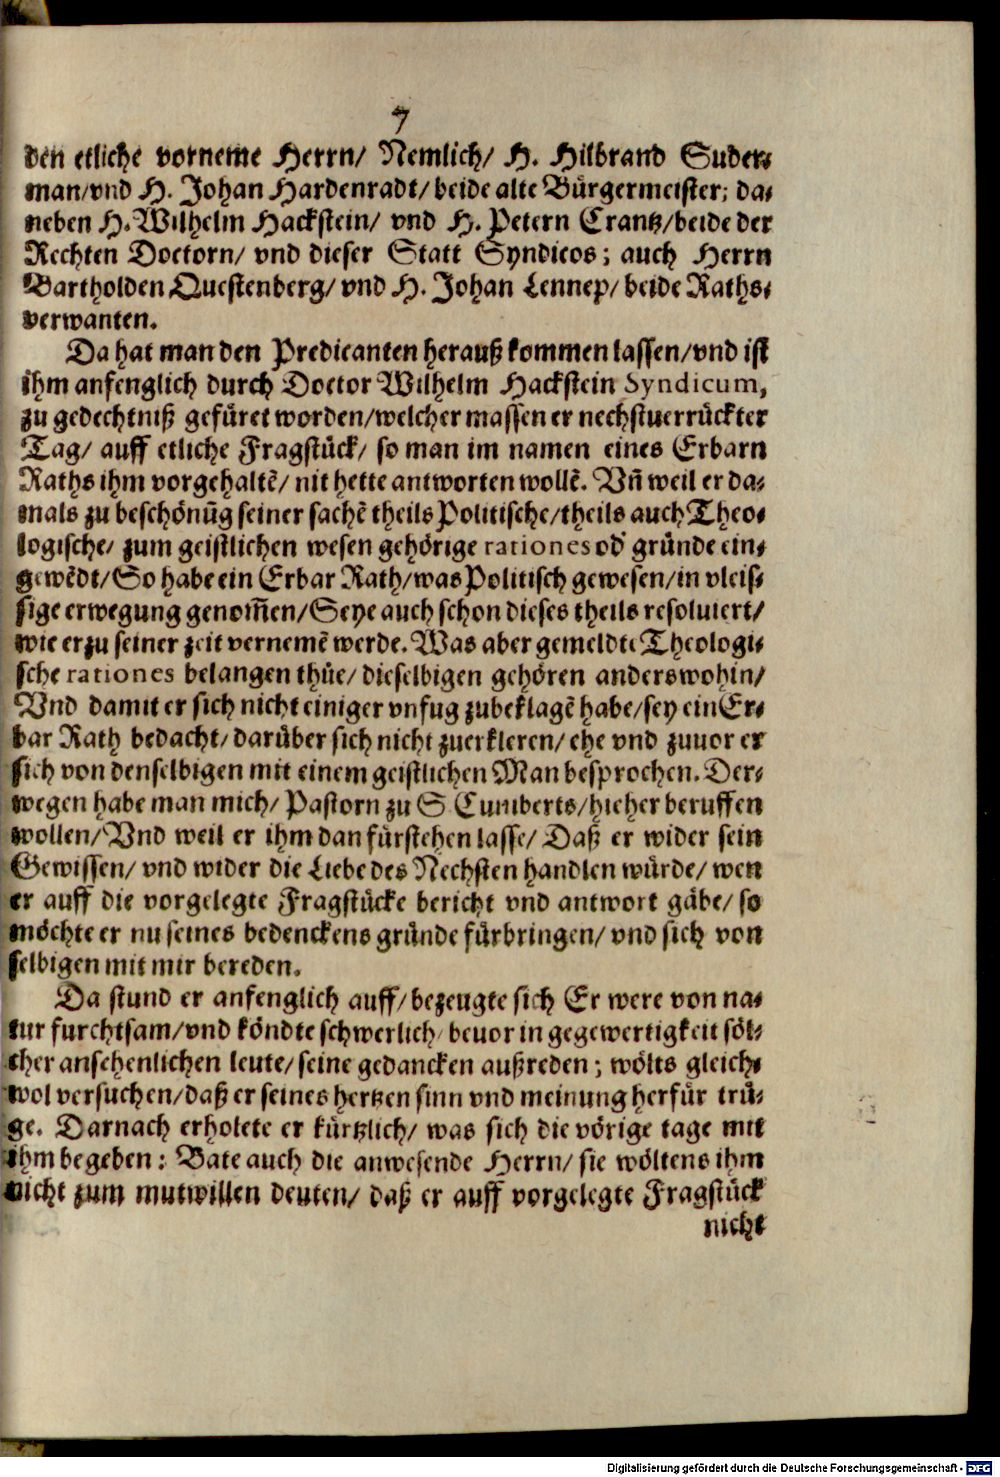 7
den etliche vorneme Herrn/ Nemlich/ H. Hilbrand Suder⸗
man/vnd H. Johan Hardenradt/ beide alte Bürgermeister; da⸗
neben H. Wilhelm Hackstein/ vnd H. Petern Crantz/ beide der
Rechten Doctorn/ vnd dieser Statt Syndicos; auch Herrn
Bartholden Questenberg/ vnd H. Johan Lennep/ beide Raths⸗
verwanten.
Da hat man den Predicanten herauß kommen lassen/ vnd ist
ihm anfenglich durch Doctor Wilhelm Hackstein Syndicum,
zu gedechtniß gefüret worden/welcher massen er nechstuerrückter
Tag/ auff etliche Fragstück/ so man im namen eines Erbarn
Raths ihm vorgehaltẽ/ nit hette antworten wollẽ. Vñ weil er da⸗
mals zu beschönũg seiner sachẽ theils Politische/theils auch Theo⸗
logische/ zum geistlichen wesen gehörige rationes od' gründe ein⸗
gewẽdt/ So habe ein Erbar Rath/ was Politisch gewesen/ in vleis⸗
sige erwegung genom̃en/ Seye auch schon dieses theils resoluiert/
wie er zu seiner zeit vernemẽ werde. Was aber gemeldte Theologi⸗
sche rationes belangen thüe/ dieselbigen gehören anderswohin/
Vnd damit er sich nicht einiger vnfug zubeklagẽ habe/ sey ein Er⸗
bar Rath bedacht/ darüber sich nicht zuerkleren/ ehe vnd zuuor er
sich von denselbigen mit einem geistlichen Man besprochen. Der⸗
wegen habe man mich/ Pastorn zu S Cuniberts/ hieher beruffen
wollen/ Vnd weil er ihm dan fürstehen lasse/ Daß er wider sein
Gewissen/ vnd wider die Liebe des Nechsten handlen würde/ wen
er auff die vorgelegte Fragstücke bericht vnd antwort gäbe/ so
möchte er nu seines bedenckens gründe fürbringen/ vnd sich von
selbigen mit mir bereden.
Da stund er anfenglich auff/ bezeugte sich Er were von na⸗
tur furchtsam/vnd köndte schwerlich/ beuor in gegewertigkeit söl⸗
cher ansehenlichen leute/ seine gedancken außreden; wölts gleich⸗
wol versuchen/ daß er seines hertzen sinn vnd meinung herfür trü⸗
ge. Darnach erholete er kürtzlich/ was sich die vörige tage mit
ihm begeben: Bate auch die anwesende Herrn/ sie wöltens ihm
nicht zum mutwillen deuten/ daß er auff vorgelegte Fragstück
nicht
Digitalisierung gefördert durch die Deutsche Forschungsgemeinschaft - DFG